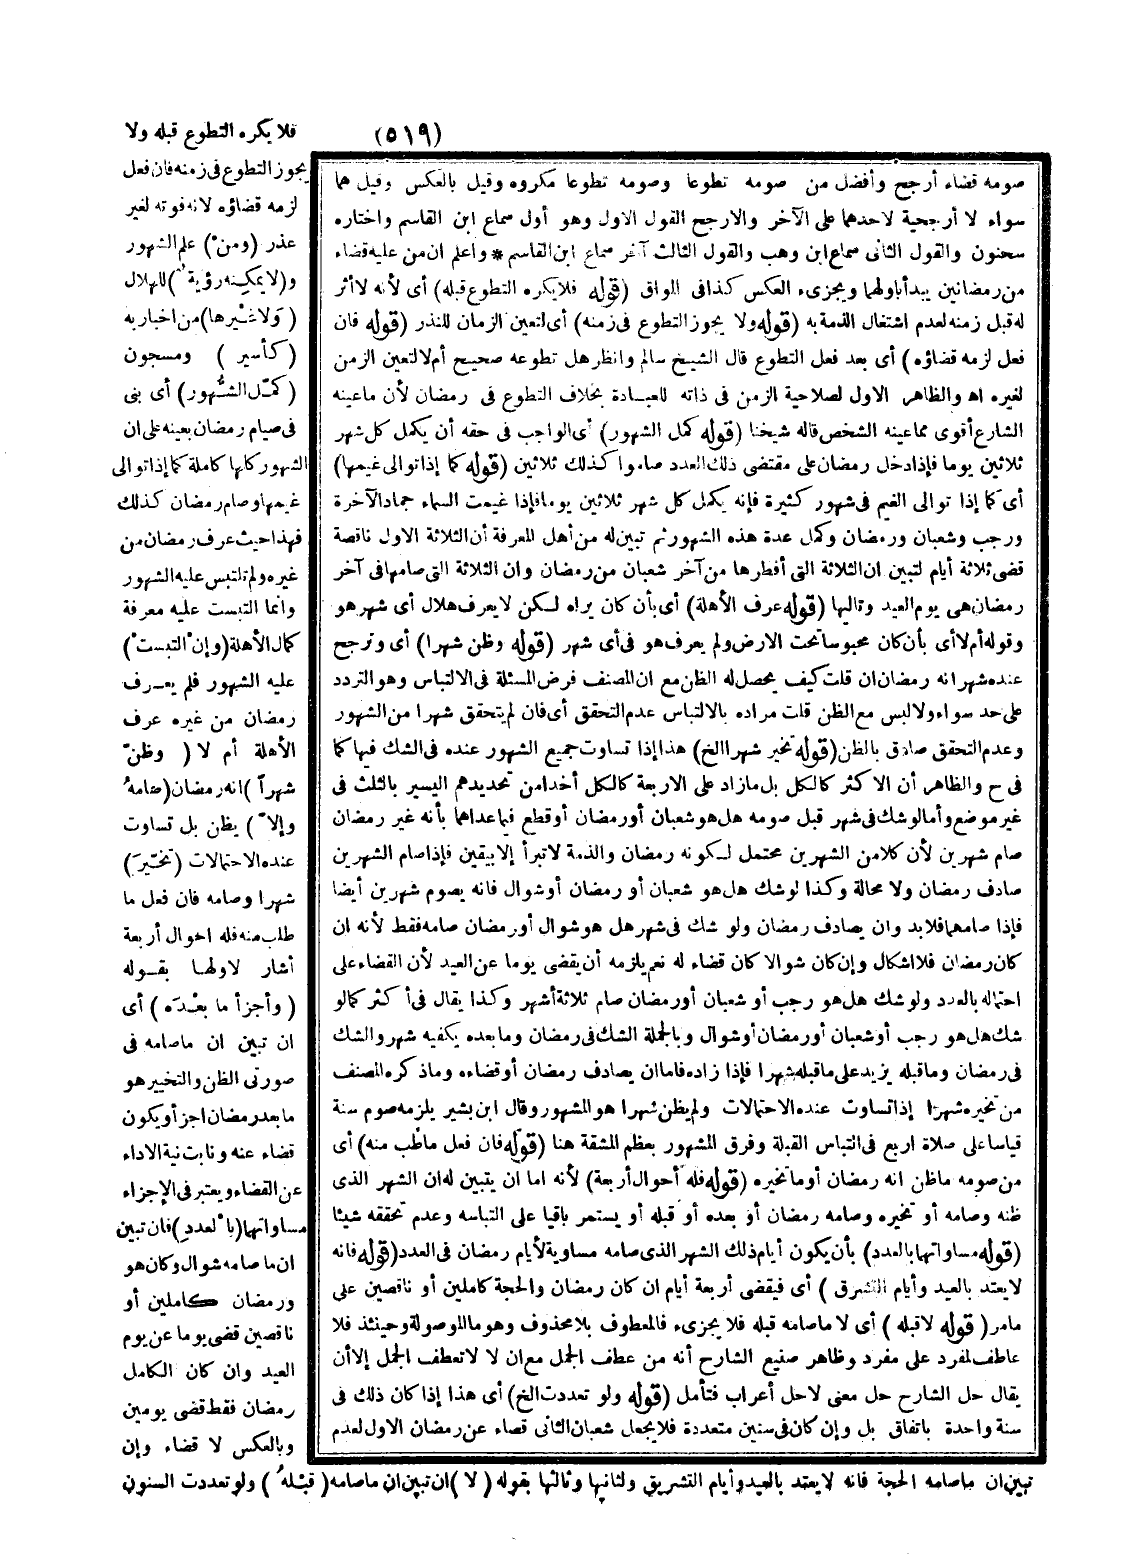 (٥١٩)
فلا يكره التطوع قبله ولا
يجوز التطوع فى زمنه فان فعل
لزمه قضاؤه لانه فوته لغير
عذر (ومن) علم الشهور
و(لا يمكنه رؤية) للهلال
(ولا غيرها) من اخبار به
(كأسير) ومسجون
(كمل الشهور) أى بنى
فى صيام رمضان بعينه على ان
الشهور كلها كاملة كما إذا توالى
غيمها وصام رمضان كذلك
فهذا حيث عرف رمضان من
غيره ولم تلتبس عليه الشهور
وانما التبست عليه معرفة
كمال الأهلة (وإن التبست)
عليه الشهور فلم يعرف
رمضان من غيره عرف
الأهلة أم لا (وظن
شهرا) انه رمضان (صامه
وإلا) يظن بل تساوت
عنده الاحتمالات (تخير)
شهرا وصامه فان فعل ما
طلب منه فله احوال أربعة
أشار لاولها بقوله
(وأجزأ ما بعده) أى
ان تبين ان ما صامه فى
صورتى الظن والتخيير هو
ما بعد رمضان اجزأ ويكون
قضاء عنه ونابت نية الاداء
عن القضاء ويعتبر فى الإجزاء
مساواتها (بالعدد) فان تبين
ان ما صامه شوال وكان هو
ورمضان كاملين أو
ناقصين قضى يوما عن يوم
العيد وان كان الكامل
رمضان فقط قضى يومين
وبالعكس لا قضاء وإن
تبين ان ما صامه الحجة فانه لا يعتد بالعيد وأيام التشريق ولثانيها وثالثها بقوله (لا) ان تبين ان ما صامه (قبله) ولو تعددت السنون
صومه قضاء أرجح وأفضل من صومه تطوعا وصومه تطوعا مكروه وقيل بالعكس وقيل هما
سواء لا أرجحية لاحدهما على الآخر والارجح القول الاول وهو أول سماع ابن القاسم واختاره
سحنون والقول الثانى سماع ابن وهب والقول الثالث آخر سماع ابن القاسم * واعلم ان من عليه قضاء
من رمضانين يبدأ باولهما ويجزىء العكس كذا فى المواق (قوله فلا يكره التطوع قبله) أى لأنه لا أثر
له قبل زمنه لعدم اشتغال الذمة به (قوله ولا يجوز التطوع فى زمنه) أى لتعين الزمان للنذر (قوله فان
فعل لزمه قضاؤه) أى بعد فعل التطوع قال الشيخ سالم وانظر هل تطوعه صحيح أم لا لتعين الزمن
لغيره اه والظاهر الاول لصلاحية الزمن فى ذاته للعبادة بخلاف التطوع فى رمضان لأن ما عينه
الشارع أقوى مما عينه الشخص قاله شيخنا (قوله كمل الشهور) أى الواجب فى حقه أن يكمل كل شهر
ثلاثين يوما فإذا دخل رمضان على مقتضى ذلك العدد صاموا كذلك ثلاثين (قوله كما إذا توالى غيمها)
أى كما إذا توالى الغيم فى شهور كثيرة فإنه يكمل كل شهر ثلاثين يوما فإذا غيمت السماء جماد الآخرة
ورجب وشعبان ورمضان وكمل عدة هذه الشهور ثم تبين له من أهل المعرفة أن الثلاثة الاول ناقصة
قضى ثلاثة أيام لتبين ان الثلاثة التى أفطرها من آخر شعبان من رمضان وان الثلاثة التى صامها فى آخر
رمضان هى يوم العيد وتالياها (قوله عرف الأهلة) أى بأن كان يراه لكن لا يعرف هلال أى شهر هو
وقوله أم لا أى بأن كان محبوسا تحت الارض ولم يعرف هو فى أى شهر (قوله وظن شهرا) أى وترجح
عنده شهر انه رمضان ان قلت كيف يحصل له الظن مع ان المصنف فرض المسئلة فى الالتباس وهو التردد
على حد سواء ولا لبس مع الظن قلت مراده بالالتباس عدم التحقق أى فان لم يتحقق شهرا من الشهور
وعدم التحقق صادق بالظن (قوله تخير شهرا الخ) هذا إذا تساوت جميع الشهور عنده فى الشك فيها كما
فى ح والظاهر أن الاكثر كالكل بل ما زاد على الاربعة كالكل أخذا من تحديدهم اليسير بالثلث فى
غير موضع وأما لو شك فى شهر قبل صومه هل هو شعبان أو رمضان أو قطع فيما عداهما بأنه غير رمضان
صام شهرين لأن كلا من الشهرين محتمل لكونه رمضان والذمة لا تبرأ إلا بيقين فإذا صام الشهرين
صادف رمضان ولا محالة وكذا لو شك هل هو شعبان أو رمضان أو شوال فانه يصوم شهرين أيضا
فإذا صامهما فلا بد وان يصادف رمضان ولو شك فى شهر هل هو شوال أو رمضان صامه فقط لأنه ان
كان رمضان فلا اشكال وإن كان شوالا كان قضاء له نعم يلزمه أن يقضى يوما عن العيد لأن القضاء على
احتماله بالعدد ولو شك هل هو رجب أو شعبان أو رمضان صام ثلاثة أشهر وكذا يقال فى أكثر كما لو
شك هل هو رجب أو شعبان أو رمضان أو شوال وبالجملة الشك فى رمضان وما بعده يكفيه شهر والشك
فى رمضان وما قبله يزيد على ما قبله شهرا فإذا زاده فاما ان يصادف رمضان أو قضاءه وما ذكره المصنف
من تخيره شهرا إذا تساوت عنده الاحتمالات ولم يظن شهرا هو المشهور وقال ابن بشير يلزمه صوم سنة
قياسا على صلاة اربع فى التباس القبلة وفرق المشهور بعظم المشقة هنا (قوله فان فعل ما طلب منه) أى
من صومه ما ظن انه رمضان أو ما تخيره (قوله فله أحوال أربعة) لأنه اما ان يتبين له ان الشهر الذى
ظنه وصامه أو تخيره وصامه رمضان أو بعده أو قبله أو يستمر باقيا على التباسه وعدم تحققه شيئا
(قوله مساواتها بالعدد) بأن يكون أيام ذلك الشهر الذى صامه مساوية لأيام رمضان فى العدد (قوله فانه
لا يعتد بالعيد وأيام التشرق) أى فيقضى أربعة أيام ان كان رمضان والحجة كاملين أو ناقصين على
مامر (قوله لا قبله) أى لا ما صامه قبله فلا يجزىء فالمعطوف بلا محذوف وهو ما الموصولة وحينئذ فلا
عاطف لمفرد على مفرد وظاهر صنيع الشارح أنه من عطف الجمل مع ان لا لا تعطف الجمل إلا أن
يقال حل الشارح حل معنى لا حل أعراب فتأمل (قوله ولو تعددت الخ) أى هذا إذا كان ذلك فى
سنة واحدة باتفاق بل وإن كان فى سنين متعددة فلا يجعل شعبان الثانى قصاء عن رمضان الاول لعدم